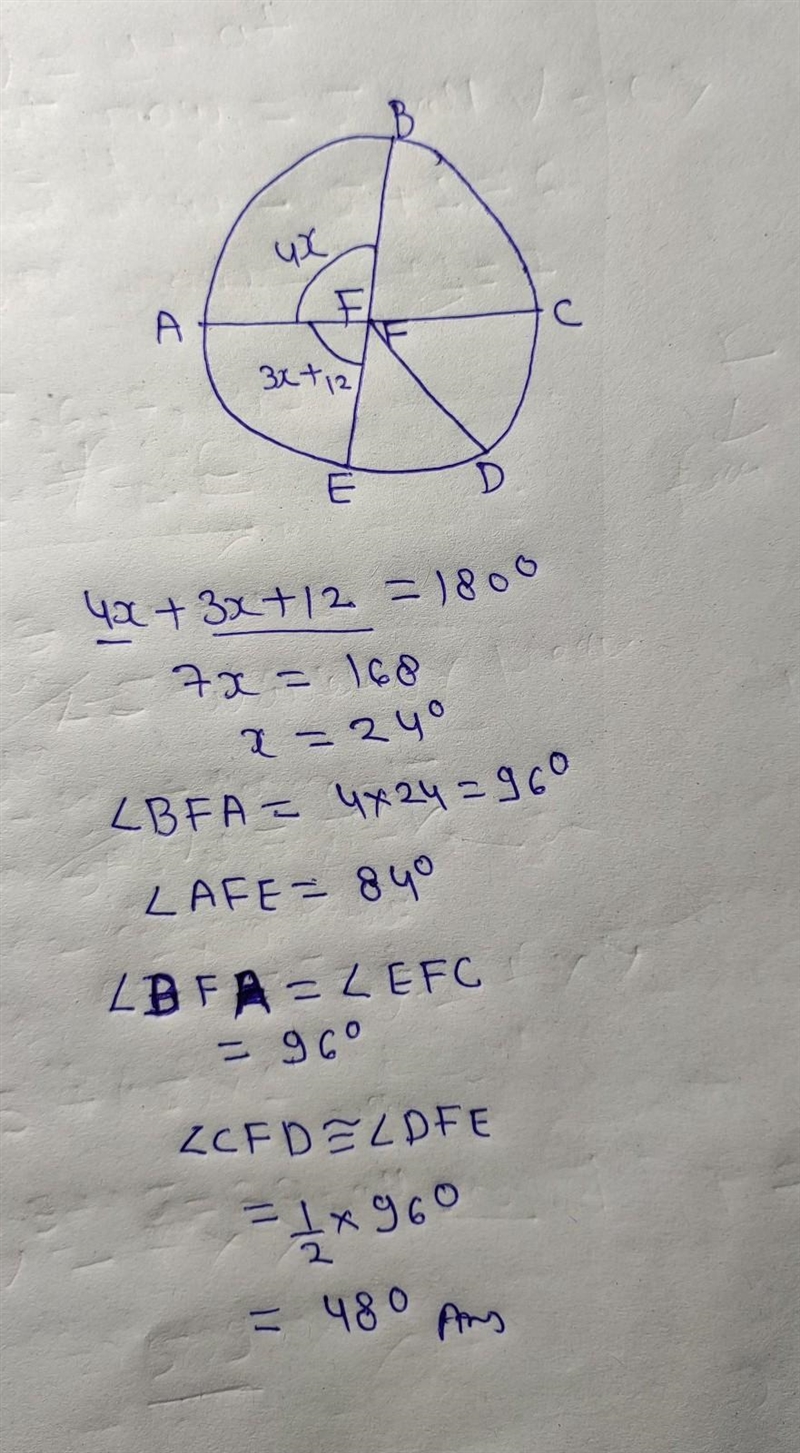 B
4x
A F F C
3x+12
E D
4x + 3x+12 = 180°
7x = 168
x = 24°
∠BFA = 4×24 = 96°
∠AFE = 84°
∠BFA = ∠EFC
= 96°
∠CFD ≅ ∠DFE
= 1/2 × 96°
= 48° Ans